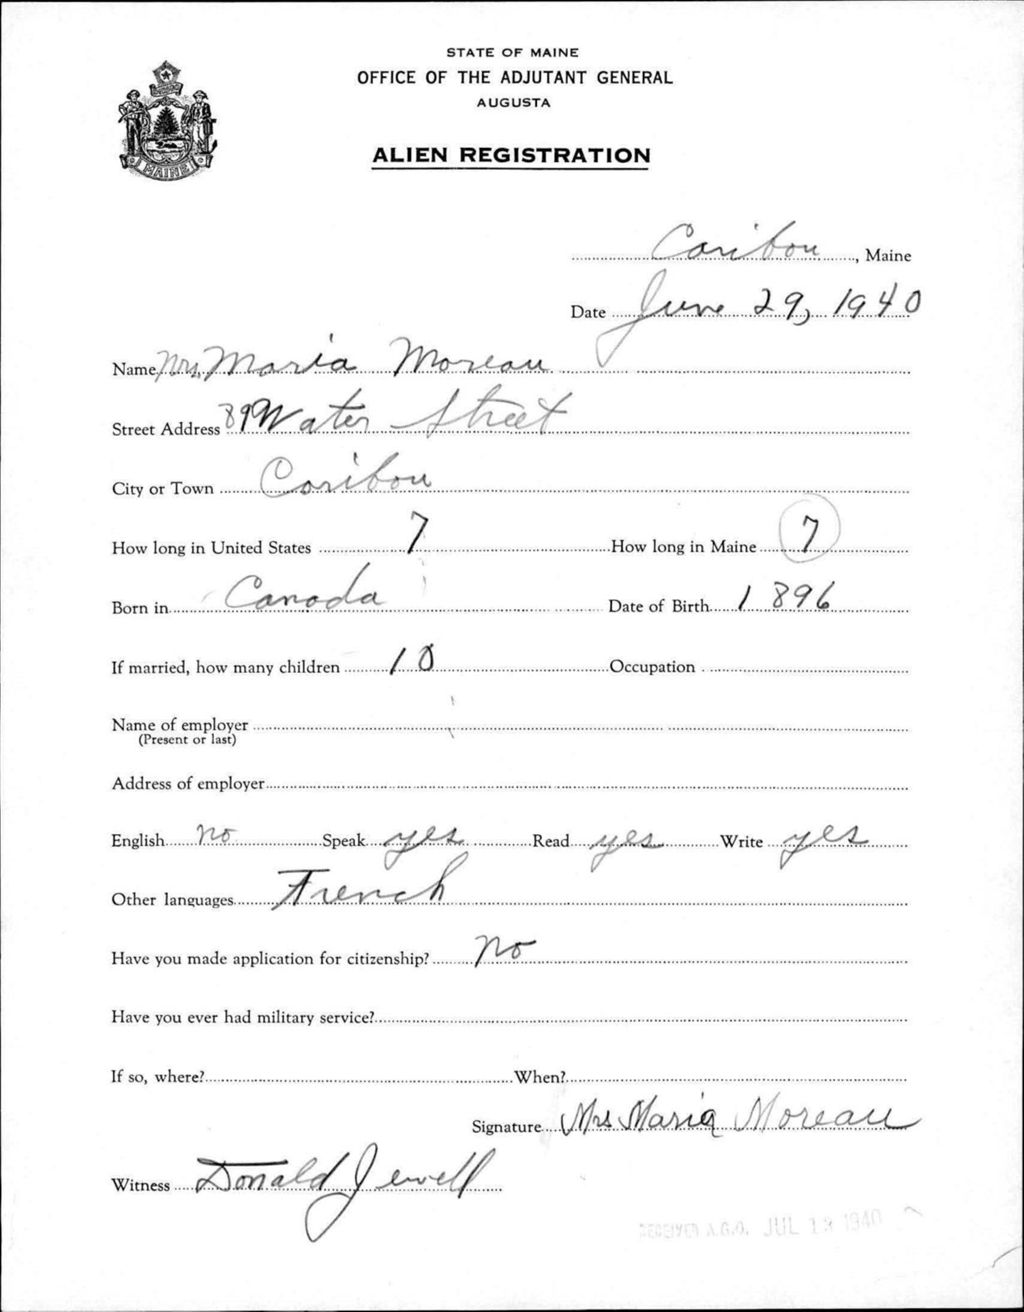 STATE OF MAINE
OFFICE OF THE ADJUTANT GENERAL
AUGUSTA
MAINE
ALIEN REGISTRATION
Caribou, Maine
Date June 29, 1940
Name Mrs. Maria Moreau
Street Address 89 Water Street
City or Town Caribou
How long in United States 7 How long in Maine 7
Born in Canada Date of Birth 1896
If married, how many children 10 Occupation
Name of employer
(Present or last)
Address of employer
English no Speak yes Read yes Write yes
Other languages French
Have you made application for citizenship? no
Have you ever had military service?
If so, where? When?
Signature Mrs Maria Moreau
Witness Donald Jewell
RECEIVED A.G.O. JUL 1940